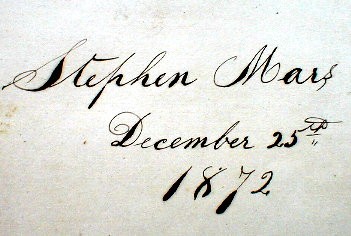 Stephen Mars
December 25th
1872